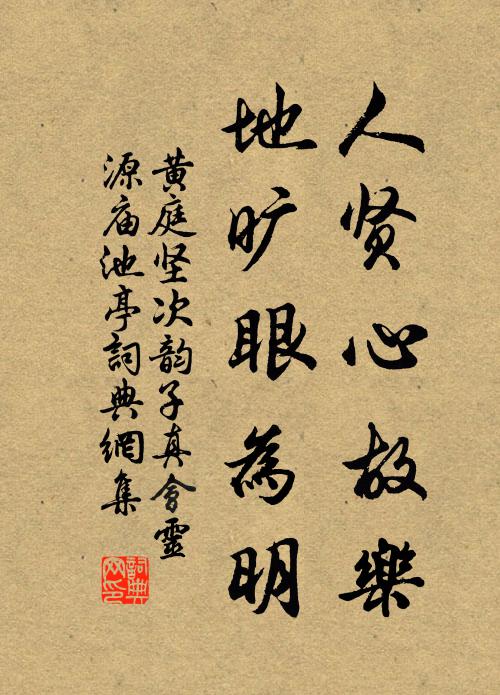 人贤心故樂
地旷眼為明
黄庭坚次韵子真会靈
源庙池亭詞典網集
詞典网印